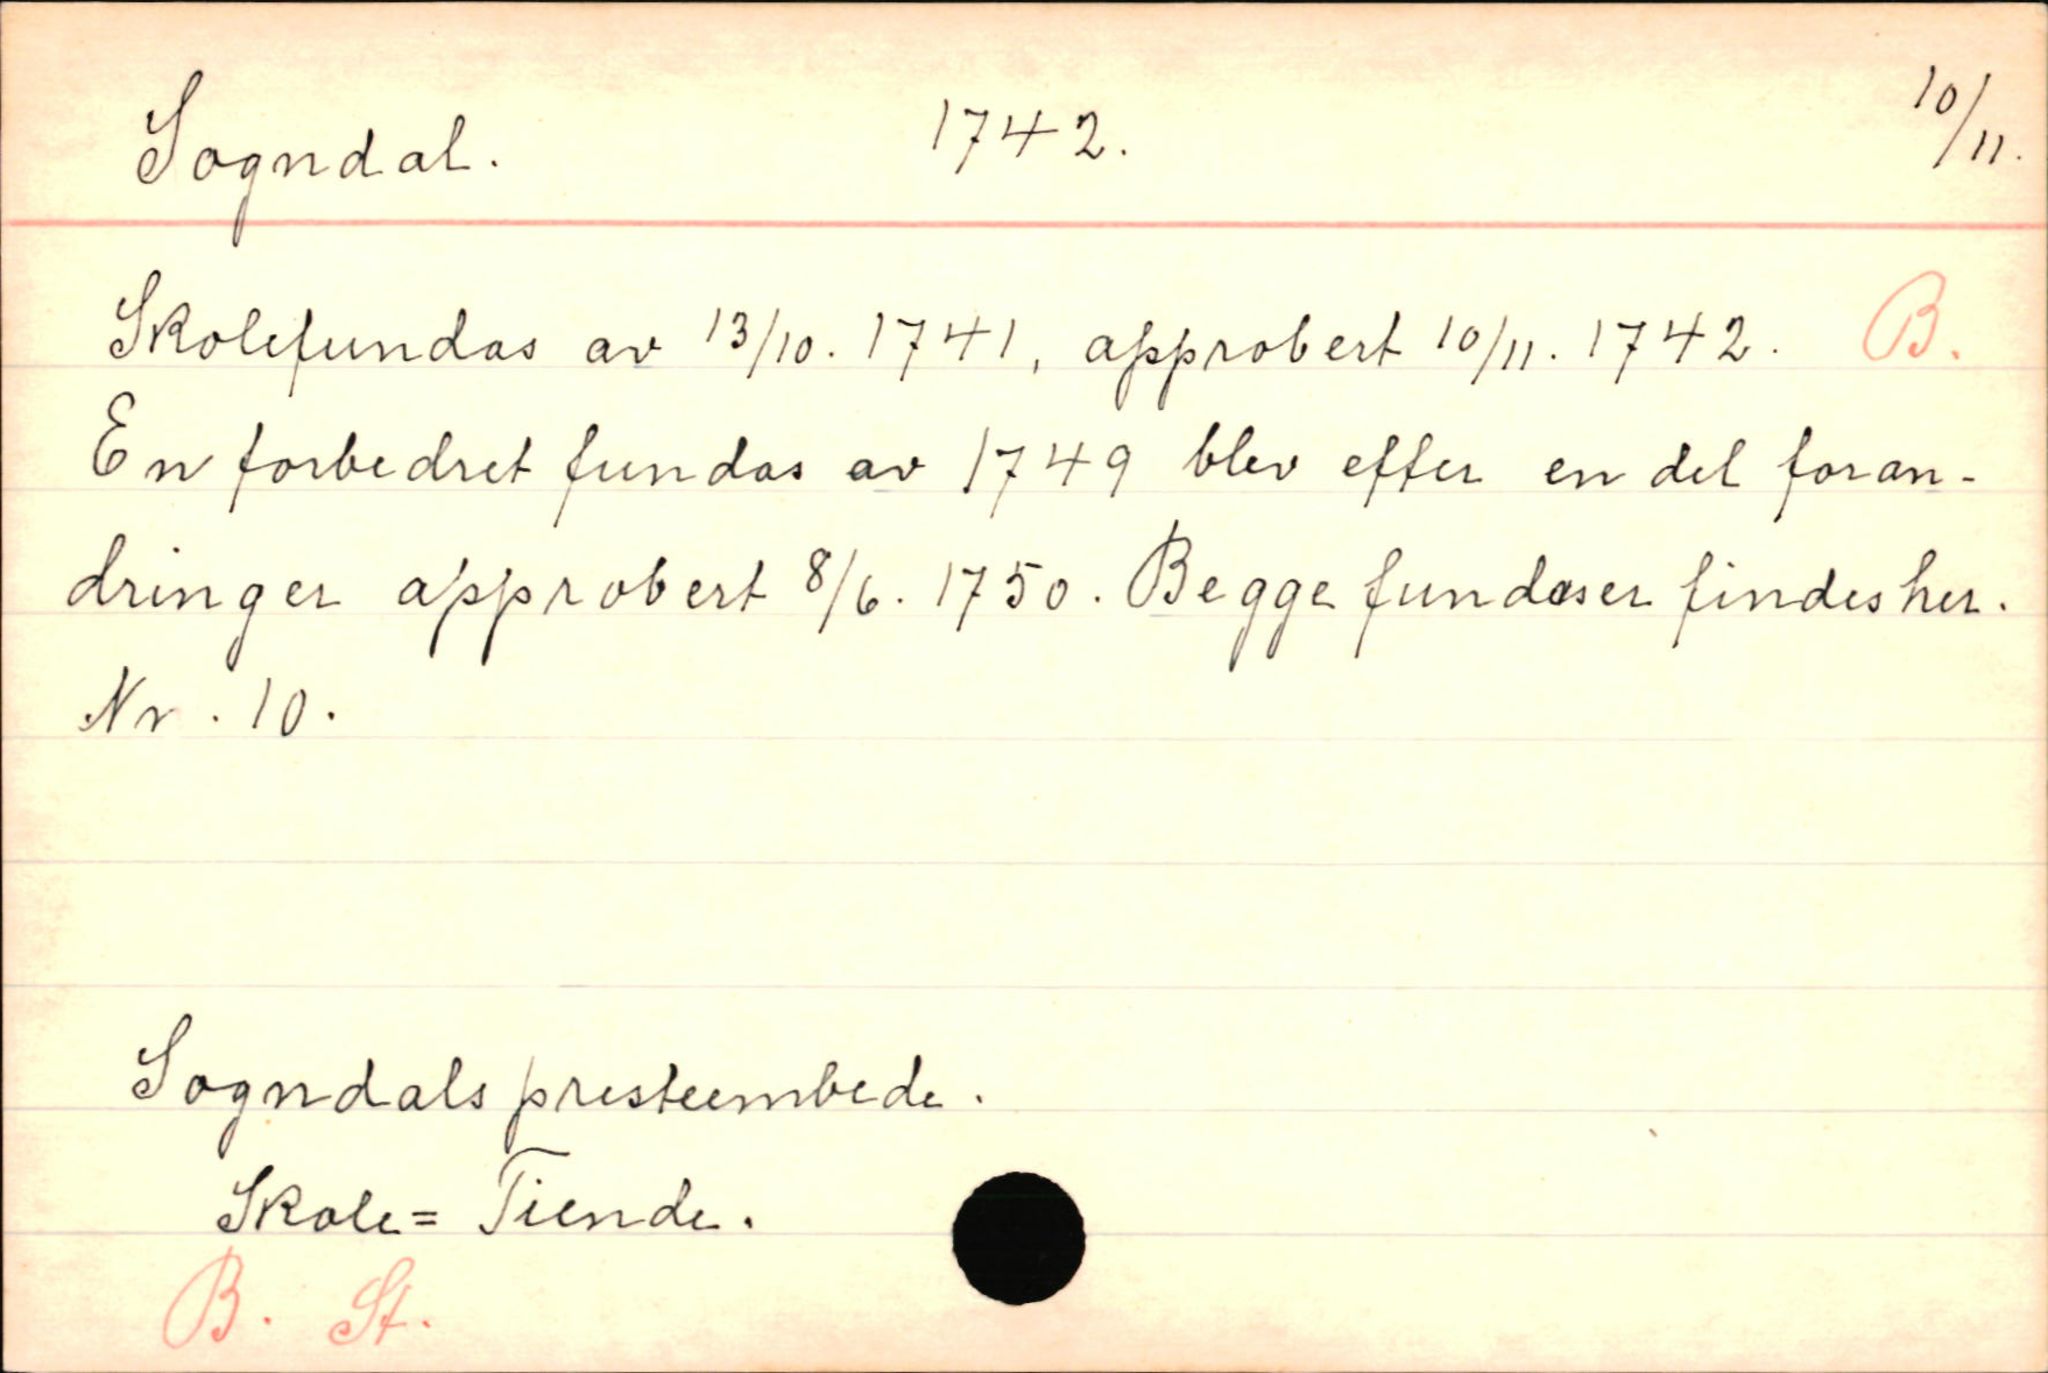 Sogndal. 1742. 10/11.
Skolefundas av 13/10. 1741, approbert 10/11. 1742. B.
En forbedret fundas av 1749 blev efter en del foran-
dringer approbert 8/6. 1750. Begge fundaser findes her.
Nr. 10.
Sogndals presteembede.
Skole= Tiende.
B. St.